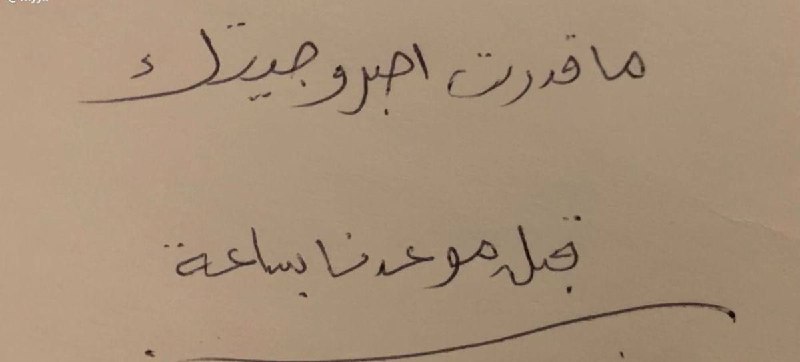 ما قدرت اصبر وجيتك
قبل موعدنا بساعة